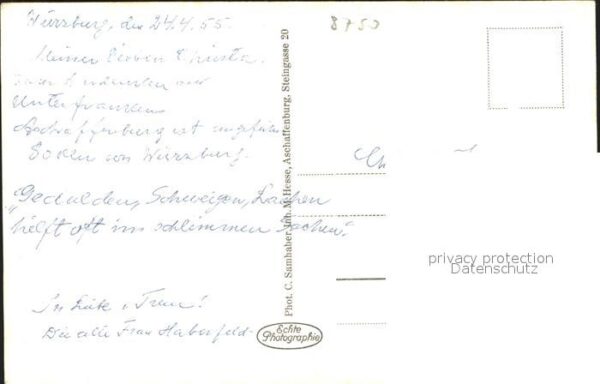 Würzburg, den 24.4.55.
8750
Meiner lieben Christa
Unterfranken
Aschaffenburg ist ungefähr
von Würzburg.
"Gedulden, Schweigen, Lachen
hilft oft in schlimmen Sachen".
In Liebe u. Treue!
Die alte Frau Haberfeld
Phot. C. Samhaber Inh. M. Hesse, Aschaffenburg, Steingasse 20
Echte
Photographie
privacy protection
Datenschutz